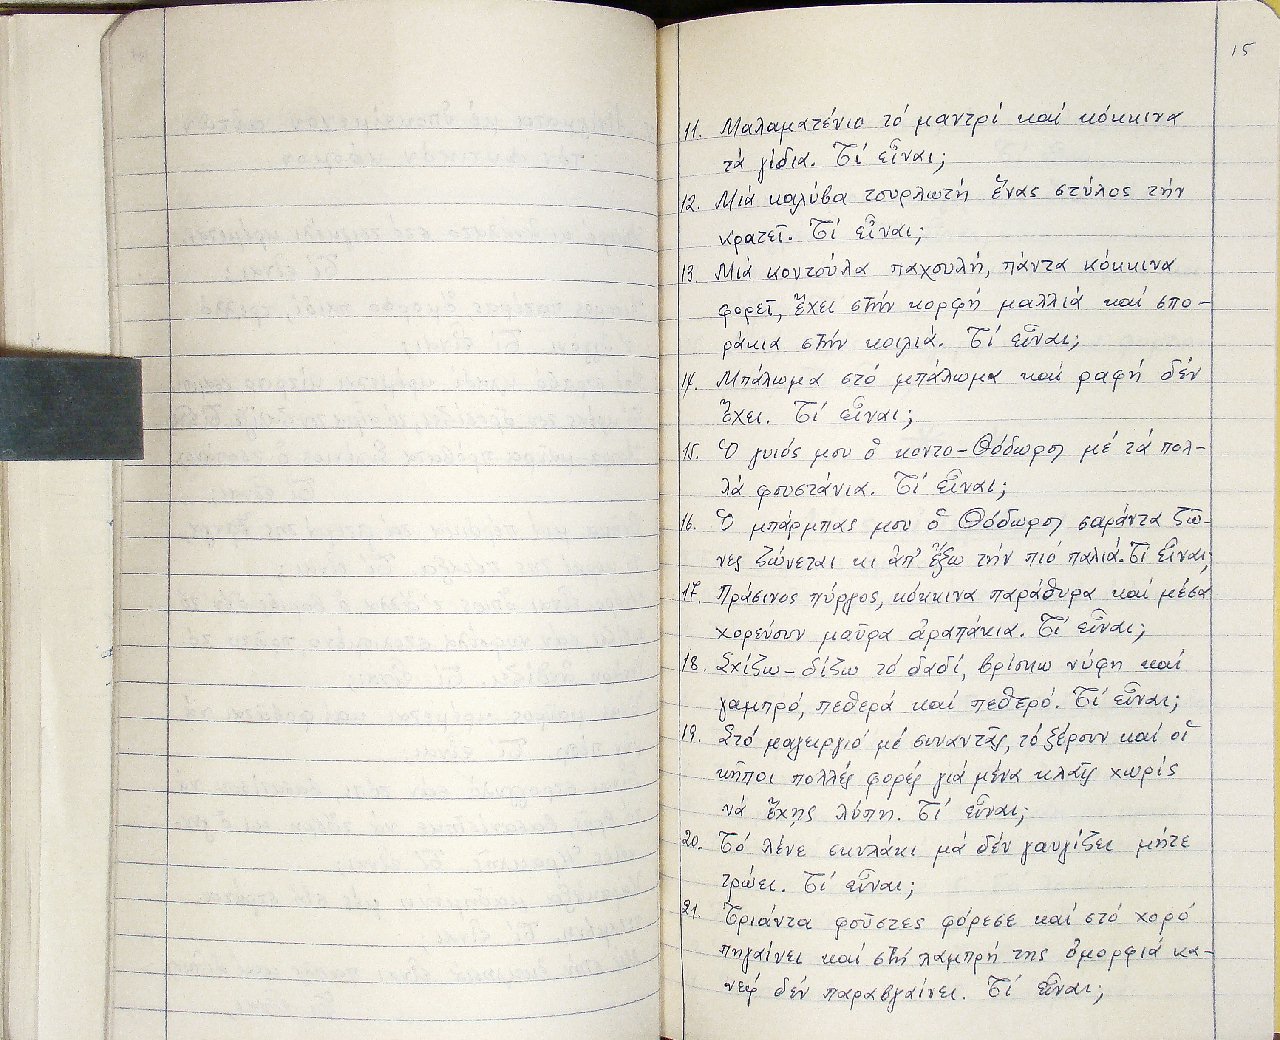 15
11. Μαλαματένιο τό μαντρί καί κόκκινα
τά γίδια. Τί εἶναι;
12. Μιά καλύβα τσουρλωτή ἕνας στύλος τήν
κρατεῖ. Τί εἶναι;
13 Μιά κοντούλα παχουλή, πάντα κόκκινα
φορεῖ, ἔχει στήν κορφή μαλλιά καί σπο-
ράκια στήν κοιλιά. Τί εἶναι;
14. Μπάλωμα στό μπάλωμα καί ραφή δέν
ἔχει. Τί εἶναι;
15. Ὁ γυιός μου ὁ κοντο-Θόδωρος μέ τά πολ-
λά φουστάνια. Τί εἶναι;
16. Ὁ μπάρμπας μου ὁ Θόδωρος σαράντα ζῶ-
νες ζώνεται κι ἀπ' ἔξω τήν πιό παλιά. Τί εἶναι;
17 Πράσινος πύργος, κόκκινα παράθυρα καί μέσα
χορεύουν μαῦρα ἀραπάκια. Τί εἶναι;
18. Σχίζω-δίζω τό δαδί, βρίσκω νύφη καί
γαμπρό, πεθερά καί πεθερό. Τί εἶναι;
19. Στό μαγειργιό μέ συναντᾶς, τό ξέρουν καί οἱ
κῆποι πολλές φορές γιά μένα κλαῖς χωρίς
νά ἔχῃς λύπη. Τί εἶναι;
20. Τό λένε σκυλάκι μά δέν γαυγίζει μήτε
τρώει. Τί εἶναι;
21. Τριάντα φοῦστες φόρεσε καί στό χορό
πηγαίνει καί στή λαμπρή της ὀμορφιά κα-
νείς δέν παραβγαίνει. Τί εἶναι;